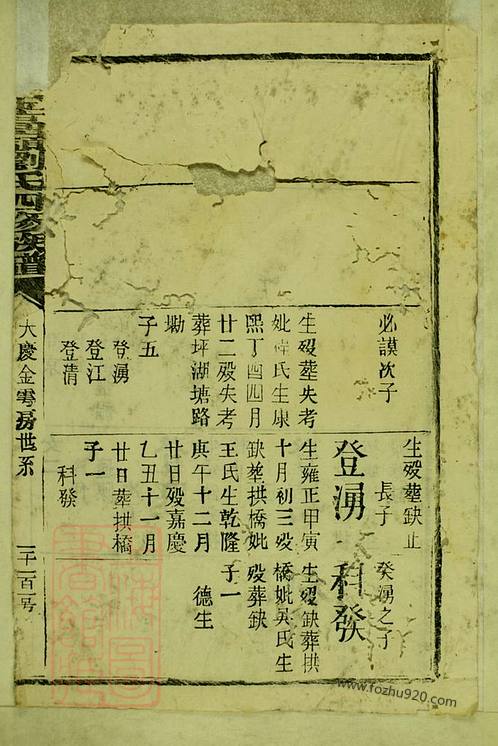 必謨次子
生歿葬失考
妣氏生康
熙丁酉四月
廿二歿失考
葬坪湖塘路
坳
子五
登湧
登江
登清
生歿葬缺止
長子
登湧
生雍正甲寅
十月初三歿
缺葬拱橋妣
王氏生乾隆
庚午十二月
廿日歿嘉慶
乙丑十一月
廿日葬拱橋
子一
科發
癸湧之子
科發
生歿缺葬拱
橋妣吳氏生
歿葬缺
子一
德生
劉氏四修族譜
大慶金雩房世系
www.fozhu920.com